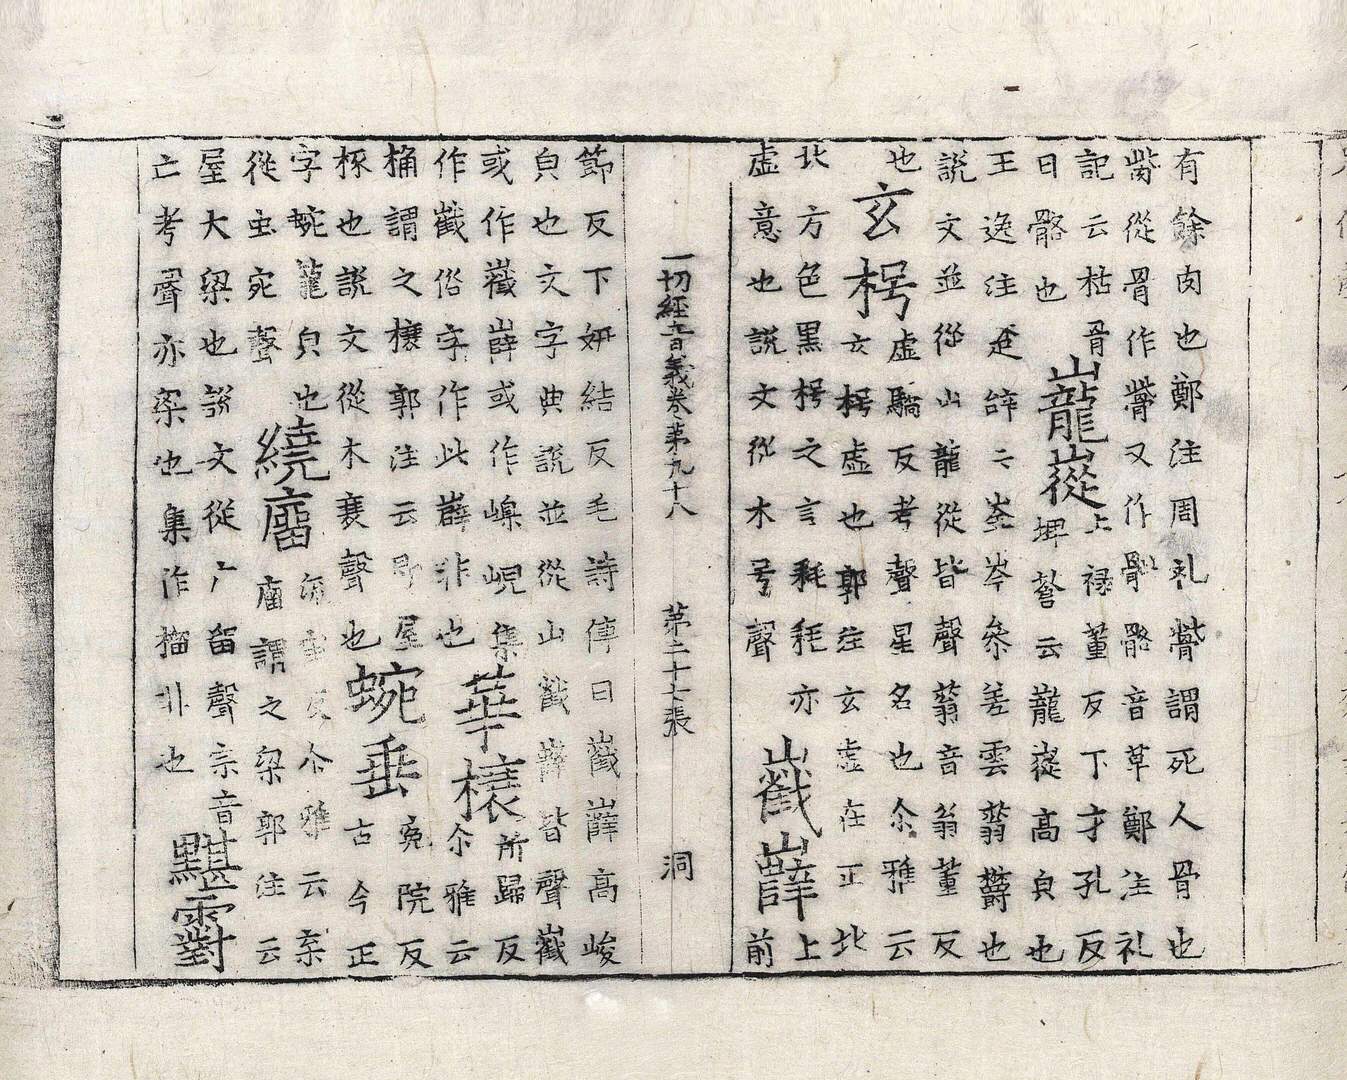 有餘肉也鄭注周礼䯝謂死人骨也
胔從骨作䯝又作骴骼音草鄭注礼
記云枯骨
曰骼也
巃嵸
上祿董反下才孔反
埤蒼云巃嵸高皃也
王逸注楚辞云崟岑叅差雲蓊欝也
説文並從山龍從皆聲蓊音翁董反
也
玄枵
虛驕反考聲星名也尒雅云
玄枵虛也郭注玄虛在正北
北方色黑枵之言耗耗亦
虛意也説文從木号聲
巀嶭
上
前
一切經音義卷第九十八 第二十七張 洞
節反下姸結反毛詩傳曰巀嶭高峻
皃也文字典説並從山截嶭皆聲巀
或作嶻嶭或作㠔峴集
作巀俗字作此嶭非也
華榱
所歸反
尒雅云
桷謂之榱郭注云即屋
椓也説文從木衰聲也
蜿垂
寃院反
古今正
字蜿龍皃也
從虫宛聲
繞廇
流宙反尒雅云杗
廇謂之梁郭注云
屋大梁也説文從广留聲宗音
亡考聲亦梁也集作橊非也
黮䨴